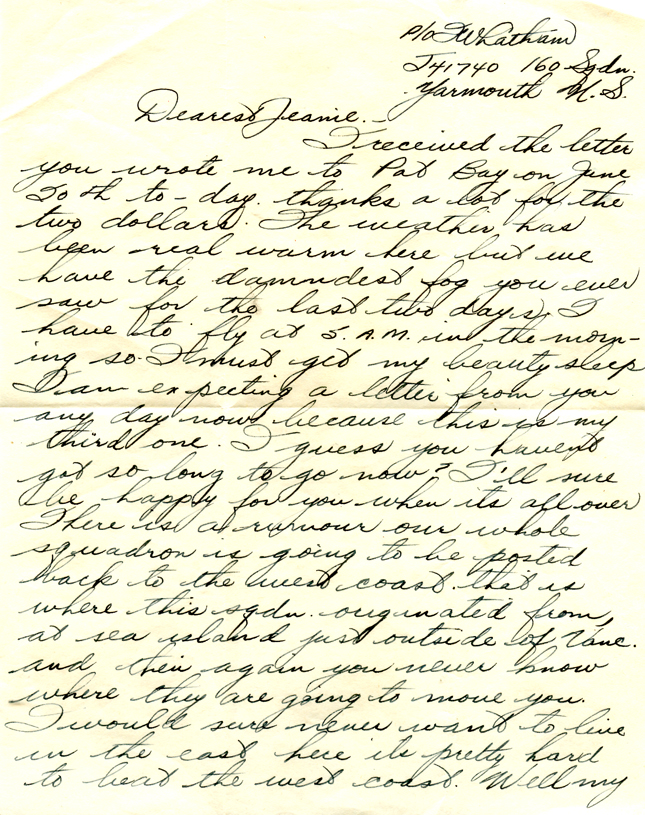 P/O J Whatham
J41740 160 Sqdn.
Yarmouth N.S.
Dearest Jeanie.
I received the letter
you wrote me to Pat Bay on June
30th to-day. thanks a lot for the
two dollars. The weather has
been real warm here but we
have the damndest fog you ever
saw for the last two days, I
have to fly at 5. A.M. in the morn-
ing so I must get my beauty sleep
I am expecting a letter from you
any day now because this is my
third one. I guess you havent
got so long to go now? I'll sure
be happy for you when its all over
There is a rumour our whole
squadron is going to be posted
back to the west coast that is
where this sqdn. originated from,
at sea island just outside of Vanc.
and then again you never know
where they are going to move you.
I would sure never want to live
in the east here its pretty hard
to beat the west coast. Well my